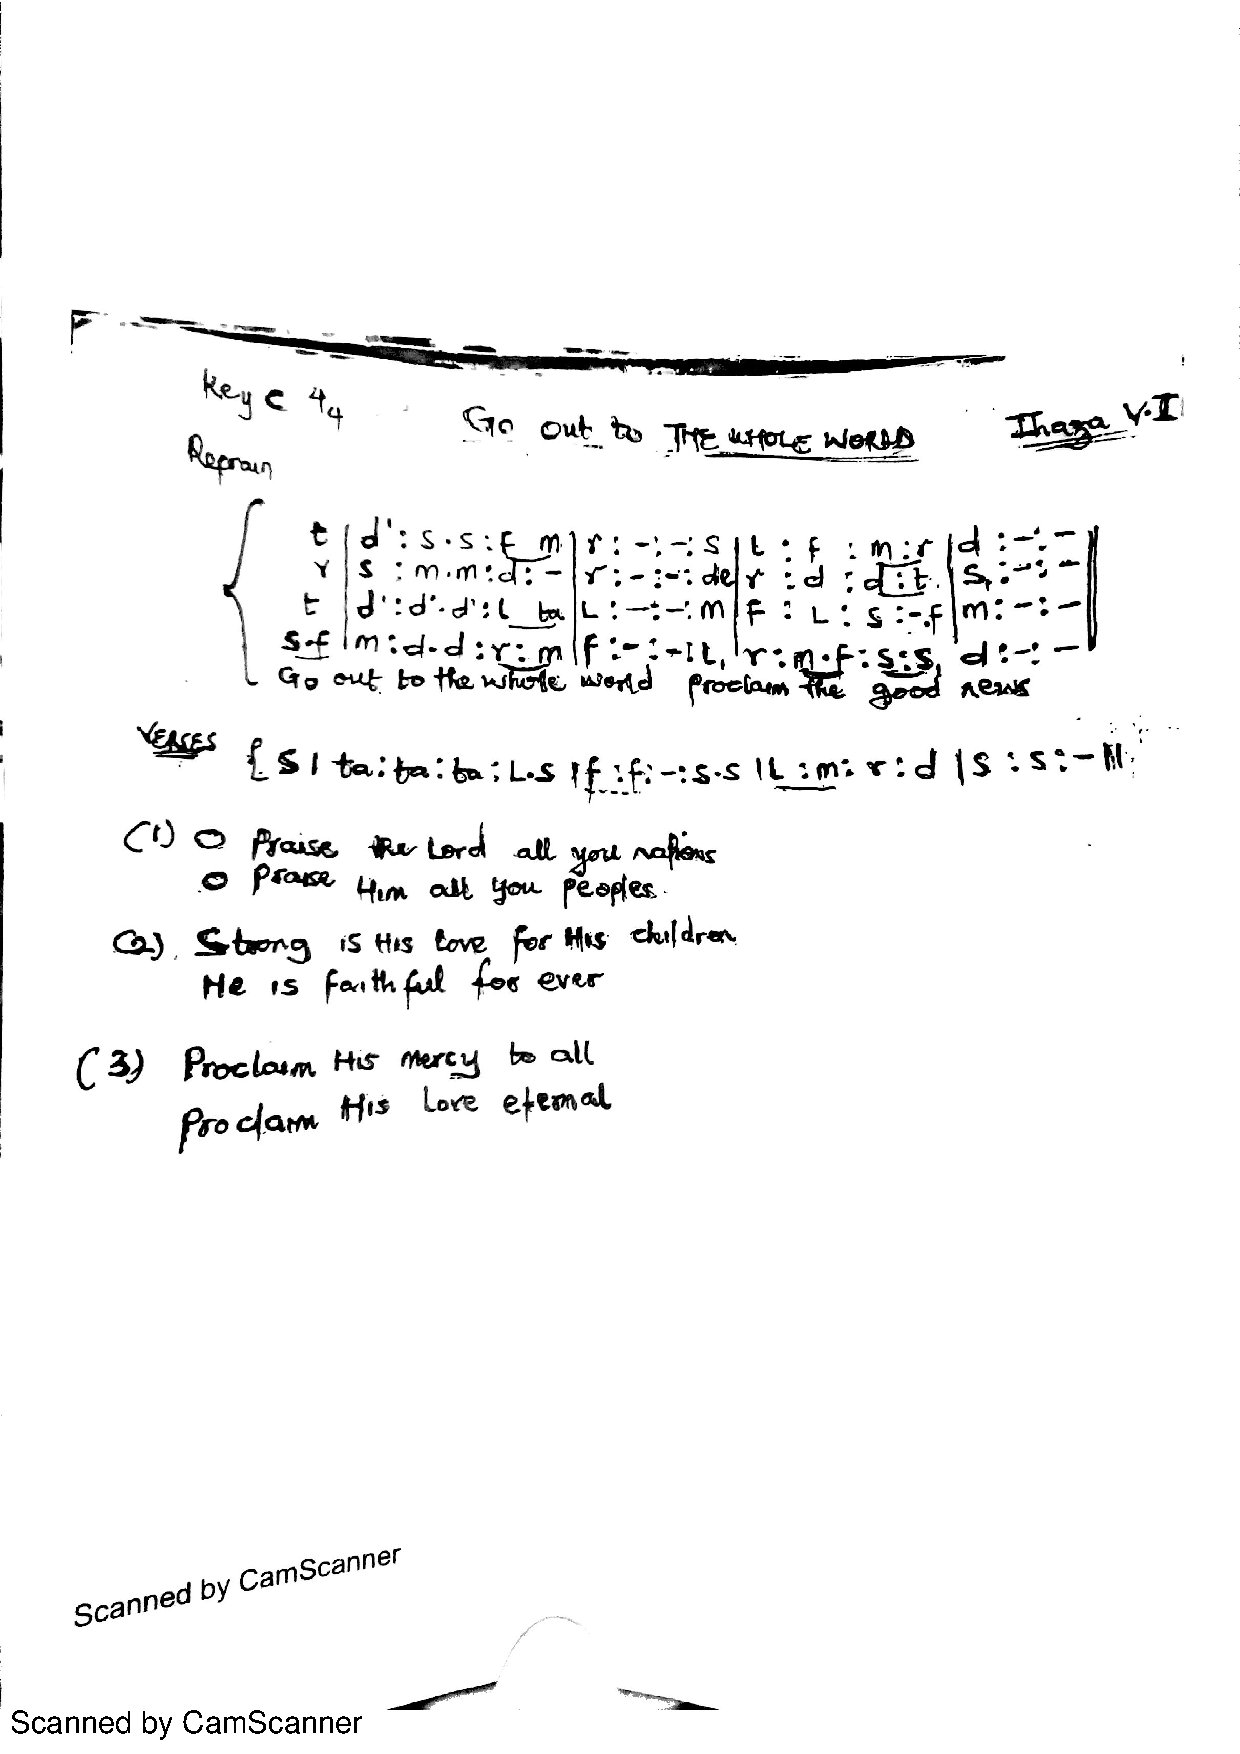 Key C 4/4
Go out to THE WHOLE WORLD
Ihaza V.I
Reprain
t | d' : s . s : f m | r : - : - : s | l : f : m : r | d : - : -
r | s : m . m : d : - | r : - : - : de | r : d : d : t | s, : - : -
t | d' : d' . d' : l ta | L : - : - : m | f : L : s : - . f | m : - : -
s . f | m : d . d : r : m | f : - : - | L, | r : m . f : s : s, | d : - : -
Go out to the whole world proclaim the good news
VERSES { S | ta : ta : ta : L . s | f : f : - : s . s | L : m : r : d | s : s : - ||
(1) O Praise the Lord all you nations
O Praise Him all you peoples.
(2). Strong is His love for His children
He is faithful for ever
(3) Proclaim His mercy to all
Proclaim His Love eternal
Scanned by CamScanner
Scanned by CamScanner